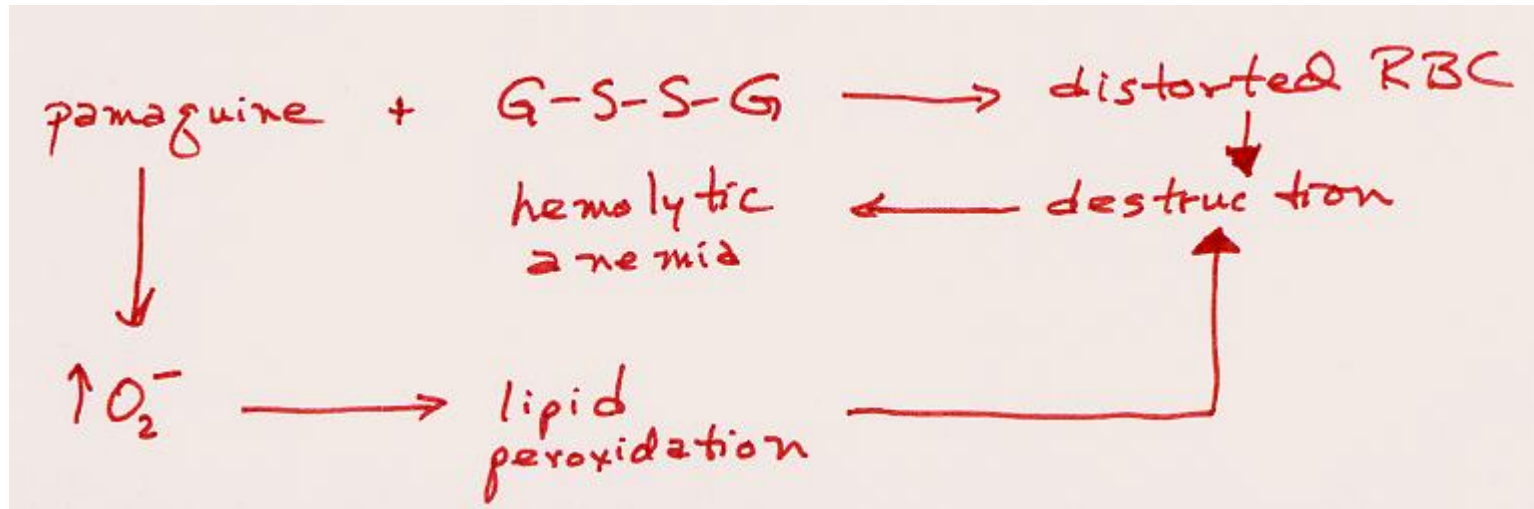 pamaquine + G-S-S-G → distorted RBC
hemolytic ← destruction
anemia
↑O₂⁻ → lipid
peroxidation